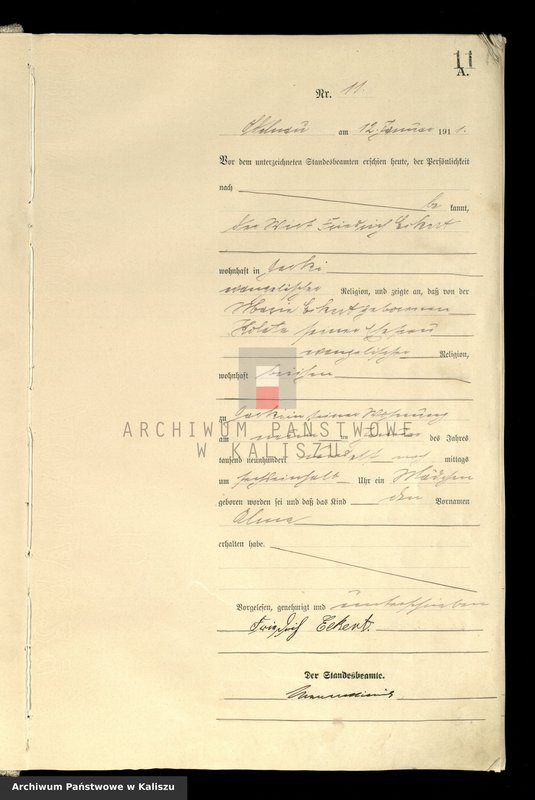 11
A.
Nr. 11.
am 12. Januar 1911.
Vor dem unterzeichneten Standesbeamten erschien heute, der Persönlichkeit
nach
be kannt,
der Wirt Friedrich Eckert
wohnhaft in
evangelischer Religion, und zeigte an, daß von der
Marie Eckert geborenen
seiner Ehefrau
evangelischer Religion,
wohnhaft bei ihm
zu in seiner Wohnung
ARCHIWUM PAŃSTWOWE
am neunten Januar des Jahres
W KALISZU
tausend neunhundert nach mittags
um Uhr ein Mädchen
geboren worden sei und daß das Kind den Vornamen
Alma
erhalten habe.
Vorgelesen, genehmigt und unterschrieben
Friedrich Eckert.
Der Standesbeamte.
Archiwum Państwowe w Kaliszu